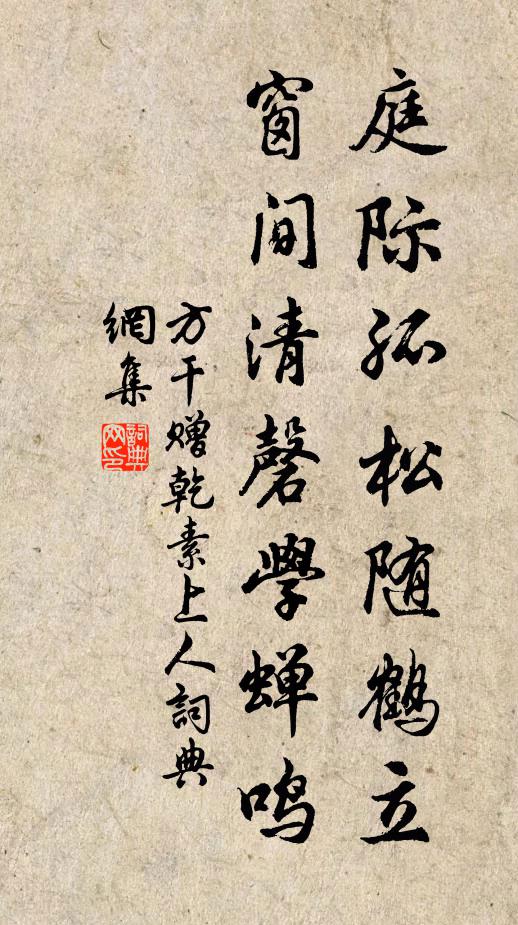 庭际孤松随鹤立
窗间清磬学蝉鸣
方干赠乾素上人詞典
網集
詞典網印